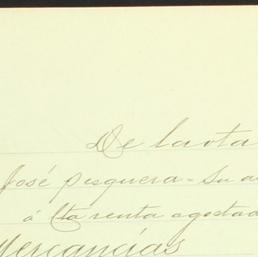 De la ota
José pesquera = Su a
á Cta renta agosta
Mercancías